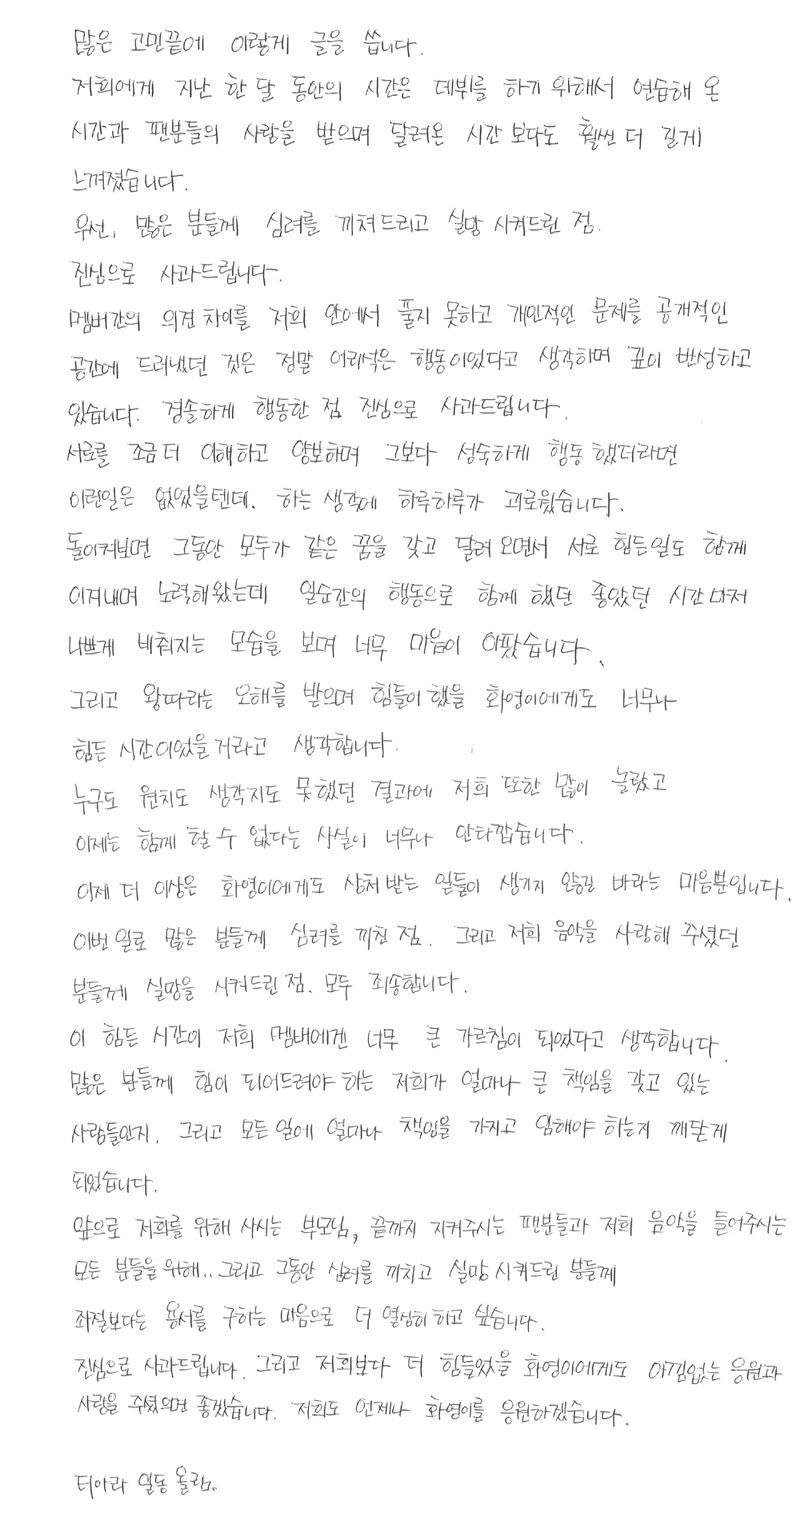 많은 고민끝에 이렇게 글을 씁니다.
저희에게 지난 한 달 동안의 시간은 데뷔를 하기 위해서 연습해 온
시간과 팬분들의 사랑을 받으며 달려온 시간 보다도 훨씬 더 길게
느껴졌습니다.
우선, 많은 분들께 심려를 끼쳐드리고 실망 시켜드린 점.
진심으로 사과드립니다.
멤버간의 의견 차이를 저희 안에서 풀지 못하고 개인적인 문제를 공개적인
공간에 드러냈던 것은 정말 어리석은 행동이었다고 생각하며 깊이 반성하고
있습니다. 경솔하게 행동한 점 진심으로 사과드립니다.
서로를 조금 더 이해하고 양보하며 그보다 성숙하게 행동 했더라면
이런일은 없었을텐데. 하는 생각에 하루하루가 괴로웠습니다.
돌이켜보면 그동안 모두가 같은 꿈을 갖고 달려 오면서 서로 힘든일도 함께
이겨내며 노력해왔는데 일순간의 행동으로 함께 했던 좋았던 시간마저
나쁘게 비춰지는 모습을 보며 너무 마음이 아팠습니다.
그리고 왕따라는 오해를 받으며 힘들어 했을 화영이에게도 너무나
힘든 시간이었을거라고 생각합니다.
누구도 원치도 생각지도 못했던 결과에 저희 또한 많이 놀랐고
이제는 함께 할 수 없다는 사실이 너무나 안타깝습니다.
이제 더 이상은 화영이에게도 상처 받는 일들이 생기지 않길 바라는 마음뿐입니다.
이번 일로 많은 분들께 심려를 끼친 점. 그리고 저희 음악을 사랑해 주셨던
분들께 실망을 시켜드린 점. 모두 죄송합니다.
이 힘든 시간이 저희 멤버에겐 너무 큰 가르침이 되었다고 생각합니다.
많은 분들께 힘이 되어드려야 하는 저희가 얼마나 큰 책임을 갖고 있는
사람들인지. 그리고 모든 일에 얼마나 책임을 가지고 임해야 하는지 깨닫게
되었습니다.
앞으로 저희를 위해 사시는 부모님, 끝까지 지켜주시는 팬분들과 저희 음악을 들어주시는
모든 분들을 위해.. 그리고 그동안 심려를 끼치고 실망 시켜드린 분들께
좌절보다는 용서를 구하는 마음으로 더 열심히 하고 싶습니다.
진심으로 사과드립니다. 그리고 저희보다 더 힘들었을 화영이에게도 아낌없는 응원과
사랑을 주셨으면 좋겠습니다. 저희도 언제나 화영이를 응원하겠습니다.
티아라 일동 올림..